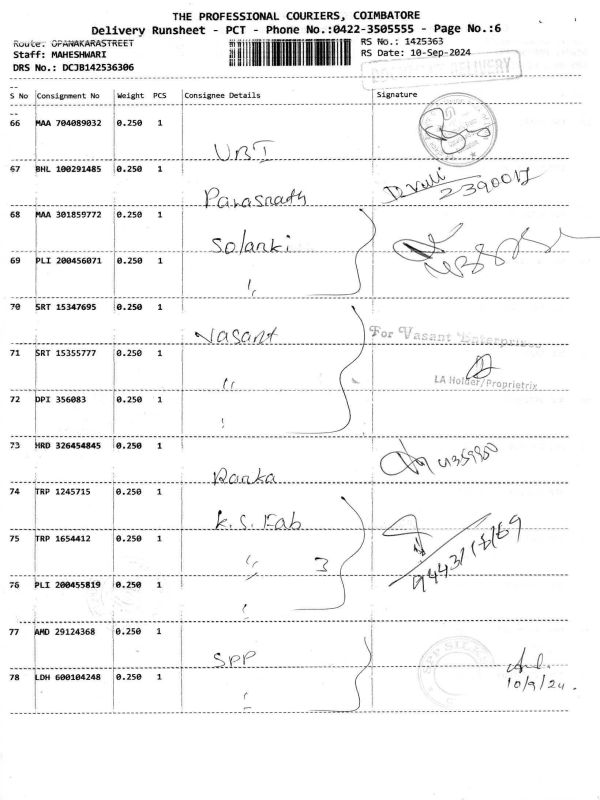 THE PROFESSIONAL COURIERS, COIMBATORE
Delivery Runsheet - PCT - Phone No.:0422-3505555 - Page No.:6
Route: OPANAKARASTREET
RS No.: 1425363
Staff: MAHESHWARI
RS Date: 10-Sep-2024
DRS No.: DCJB142536306
DELIVERY
--
S No Consignment No Weight PCS Consignee Details Signature
--
66 MAA 704089032 0.250 1
UBI
67 BHL 100291485 0.250 1
Parasnath
D. Valli
2390017
68 MAA 301859772 0.250 1
Solanki
69 PLI 200456071 0.250 1
"
70 SRT 15347695 0.250 1
Vasant
For Vasant Enterprises
71 SRT 15355777 0.250 1
"
LA Holder/Proprietrix
72 DPI 356083 0.250 1
"
73 HRD 326454845 0.250 1
Ranka
74 TRP 1245715 0.250 1
K.S. Fab
75 TRP 1654412 0.250 1
" 3
76 PLI 200455819 0.250 1
"
77 AMD 29124368 0.250 1
SPP
SPP SILKS
78 LDH 600104248 0.250 1
"
10/9/24.